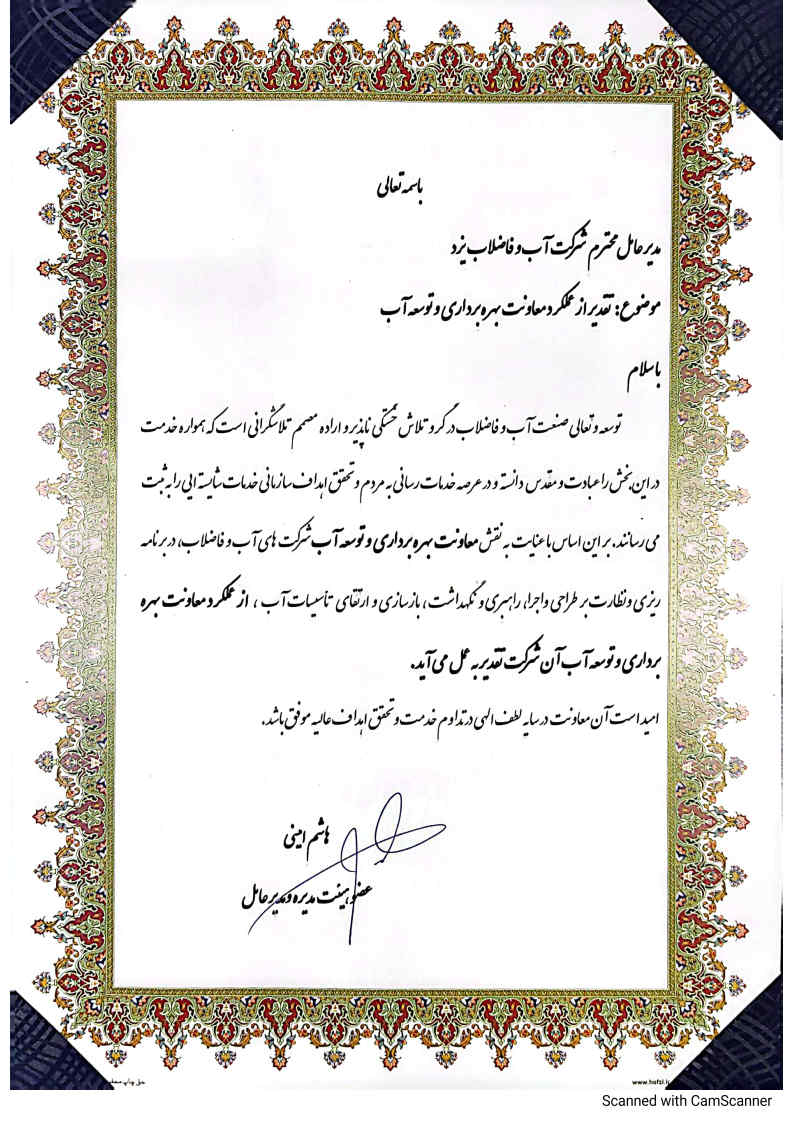 باسمه تعالی
مدیرعامل محترم شرکت آب و فاضلاب یزد
موضوع: تقدیر از عملکرد معاونت بهره برداری و توسعه آب
باسلام
توسعه و تعالی صنعت آب و فاضلاب در گرو تلاش خستگی ناپذیر و اراده مصمم تلاشگرانی است که همواره خدمت
در این بخش را عبادت و مقدس دانسته و در عرصه خدمات رسانی به مردم و تحقق اهداف سازمانی خدمات شایسته ایی را به ثبت
می رسانند. بر این اساس با عنایت به نقش معاونت بهره برداری و توسعه آب شرکت های آب و فاضلاب، در برنامه
ریزی و نظارت بر طراحی و اجرا، راهبری و نگهداشت، بازسازی و ارتقای تأسیسات آب ، از عملکرد معاونت بهره
برداری و توسعه آب آن شرکت تقدیر به عمل می آید.
امید است آن معاونت در سایه لطف الهی در تداوم خدمت و تحقق اهداف عالیه موفق باشد.
هاشم امینی
عضو هیئت مدیره و مدیرعامل
حق چاپ
www.hafzi.i
Scanned with CamScanner